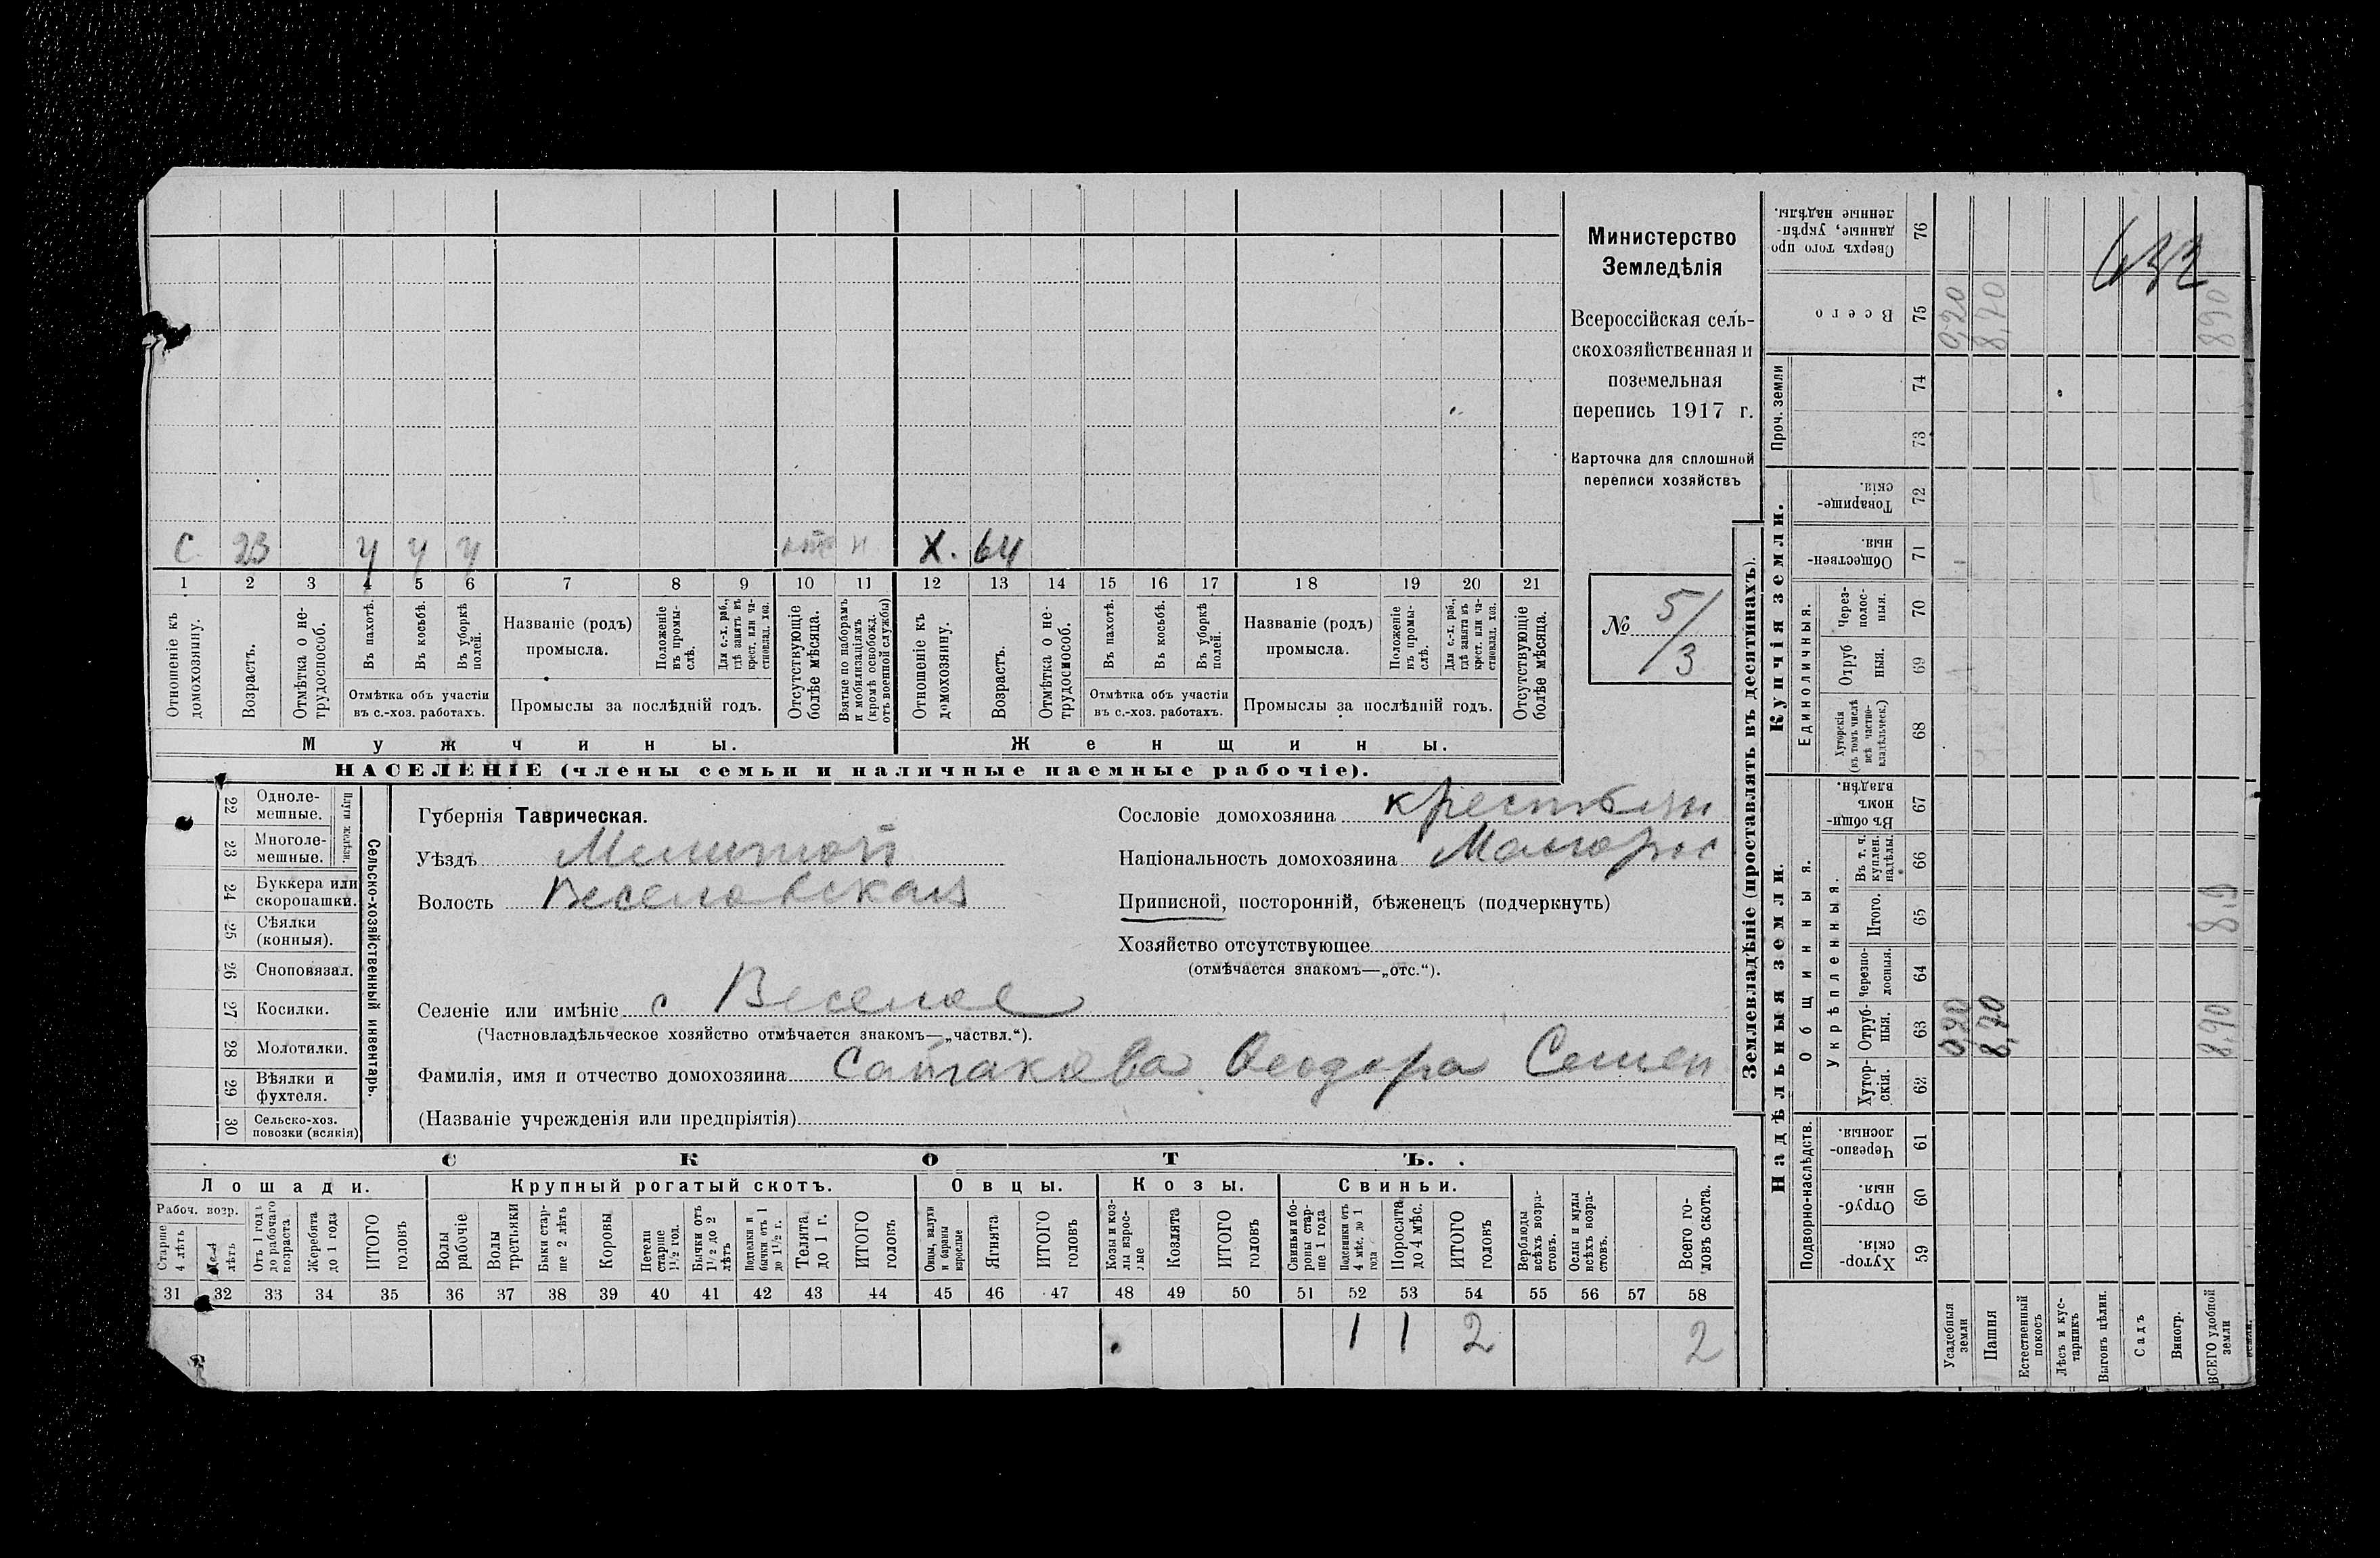 С 23 ч ч ч отс н Х. 64
1 2 3 4 5 6 7 8 9 10 11 12 13 14 15 16 17 18 19 20 21
Отношеніе къ домохозяину.
Возрастъ.
Отмѣтка о нетрудоспособ.
Въ пахотѣ.
Въ косьбѣ.
Въ уборкѣ полей.
Отмѣтка объ участіи
въ с.-хоз. работахъ.
Названіе (родъ)
промысла.
Положеніе въ промыслѣ.
Для с.-х. раб., гдѣ занятъ въ крест. или частновлад. хоз.
Промыслы за послѣдній годъ.
Отсутствующіе болѣе мѣсяца.
Взятые по наборамъ и мобилизаціямъ (кромѣ освобожд. отъ военной службы)
Отношеніе къ домохозяину.
Возрастъ.
Отмѣтка о нетрудоспособ.
Въ пахотѣ.
Въ косьбѣ.
Въ уборкѣ полей.
Отмѣтка объ участіи
въ с.-хоз. работахъ.
Названіе (родъ)
промысла.
Положеніе въ промыслѣ.
Для с.-х. раб., гдѣ занята въ крест. или частновлад. хоз.
Промыслы за послѣдній годъ.
Отсутствующіе болѣе мѣсяца.
Мужчины.
Женщины.
НАСЕЛЕНІЕ (члены семьи и наличные наемные рабочіе).
Министерство
Земледѣлія
Всероссійская сель-
скохозяйственная и
поземельная
перепись 1917 г.
Карточка для сплошной
переписи хозяйствъ
№ 5/3
22 Однолемешные.
23 Многолемешные.
Плуги желѣзн.
24 Буккера или скоропашки.
25 Сѣялки (конныя).
26 Сноповязал.
27 Косилки.
28 Молотилки.
29 Вѣялки и фухтеля.
30 Сельско-хоз. повозки (всякія)
Сельско-хозяйственный инвентарь.
Губернія Таврическая.
Уѣздъ Мелитоп
Волость Веселовская
Сословіе домохозяина крестьян
Національность домохозяина Малорос
Приписной, посторонній, бѣженецъ (подчеркнуть)
Хозяйство отсутствующее
(отмѣчается знакомъ—„отс.“).
Селеніе или имѣніе с Веселое
(Частновладѣльческое хозяйство отмѣчается знакомъ—„частвл.“).
Фамилія, имя и отчество домохозяина Сатакова Ѳеодора Семен
(Названіе учрежденія или предпріятія)
СКОТЪ.
Лошади.
Рабоч. возр.
Старше 4 лѣтъ
лѣтъ
Отъ 1 года до рабочаго возраста
Жеребята до 1 года
ИТОГО головъ
Крупный рогатый скотъ.
Волы рабочіе
Волы третьяки
Быки старше 2 лѣтъ
Коровы
Нетели старше 1½ год.
Бычки отъ 1½ до 2 лѣтъ
Подтелки и бычки отъ 1 до 1½ г.
Телята до 1 г.
ИТОГО головъ
Овцы.
Овцы, валухи и бараны взрослые
Ягнята
ИТОГО головъ
Козы.
Козы и козлы взрослые
Козлята
ИТОГО головъ
Свиньи.
Свиньи и боровы старше 1 года
Подсвинки отъ 4 мѣс. до 1 года
Поросята до 4 мѣс.
ИТОГО головъ
Верблюды всѣхъ возрастовъ.
Ослы и мулы всѣхъ возрастовъ.
Всего головъ скота.
31 32 33 34 35 36 37 38 39 40 41 42 43 44 45 46 47 48 49 50 51 52 53 54 55 56 57 58
1 1 2 2
Землевладѣніе (проставлять въ десятинахъ).
Купчія земли.
Надѣльныя земли.
Сверхъ того проданные, укрѣпленные надѣлы. 76
Всего 75 0,20 8,70 890
632
Проч. земли 74 73
Товарищескія. 72
Общественныя. 71
Единоличныя.
Черезполосныя. 70
Отрубныя. 69
Хуторскія (въ томъ числѣ всѣ частновладѣльческ.) 68
Общинныя.
Въ общинномъ владѣн. 67
Укрѣпленныя.
Въ т. ч. куплен. надѣлы. 66
Итого. 65
Черезполосныя. 64
Отрубныя. 63 0,20 8,70 8,90
Хуторскія. 62
Подворно-наслѣдств.
Черезполосныя. 61
Отрубныя. 60
Хуторскія. 59
Усадебныя земли
Пашня
Естественный покосъ
Лѣсъ и кустарникъ
Выгонъ цѣлин.
Садъ
Виногр.
ВСЕГО удобной земли